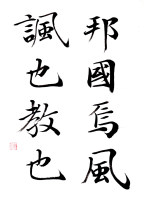 邦國焉風
諷也教也